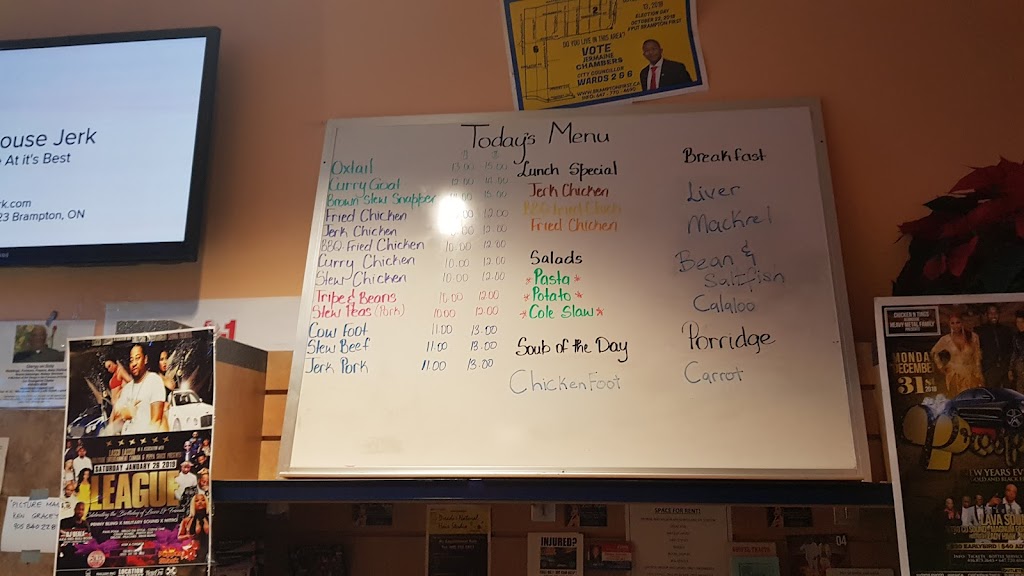 ouse Jerk
At it's Best
rk.com
23 Brampton, ON
ELECTION DAY
OCTOBER 22, 2018
DO YOU LIVE IN THIS AREA?
VOTE
JERMAINE
CHAMBERS
CITY COUNCILLOR
WARDS 2 & 6
Today's Menu
Oxtail 13.00 15.00
Curry Goat
Brown Stew Snapper 15.00
Fried Chicken 12.00
Jerk Chicken 12.00
BBQ Fried Chicken 10.00 12.00
Curry Chicken 10.00 12.00
Stew Chicken 10.00 12.00
Tripe & Beans 10.00 12.00
Stew Peas (Pork) 10.00 12.00
Cow Foot 11.00 13.00
Stew Beef 11.00 13.00
Jerk Pork 11.00 13.00
Lunch Special
Jerk Chicken
BBQ Fried Chicken
Fried Chicken
Salads
*Pasta*
*Potato*
*Cole Slaw*
Soub of the Day
Chicken Foot
Breakfast
Liver
Mackrel
Bean &
Saltfish
Calaloo
Porridge
Carrot
SATURDAY JANUARY 26 2019
LEAGUE
PICTURE MAN
KEN GRACEY
CHICKEN N THINGS
HEAVY METAL FAMILY
MONDA
DECEMBE
31ST
2018
EW YEARS EV
LAVA SOU
INJURED?
SPACE FOR RENT!